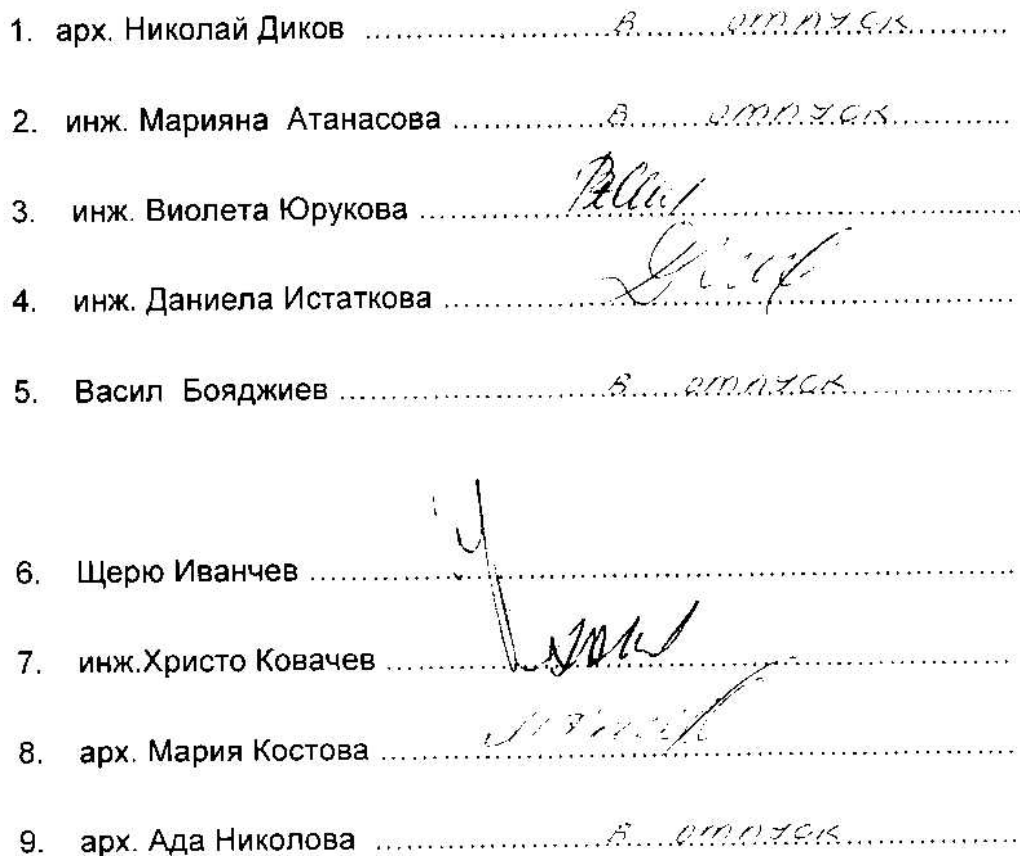 1. арх. Николай Диков ........................в......отпуск............
2. инж. Марияна Атанасова ................в......отпуск............
3. инж. Виолета Юрукова ..................................................
4. инж. Даниела Истаткова ..................................................
5. Васил Бояджиев ............................в......отпуск............
6. Щерю Иванчев ..................................................
7. инж.Христо Ковачев ..................................................
8. арх. Мария Костова ..................................................
9. арх. Ада Николова ........................в......отпуск............